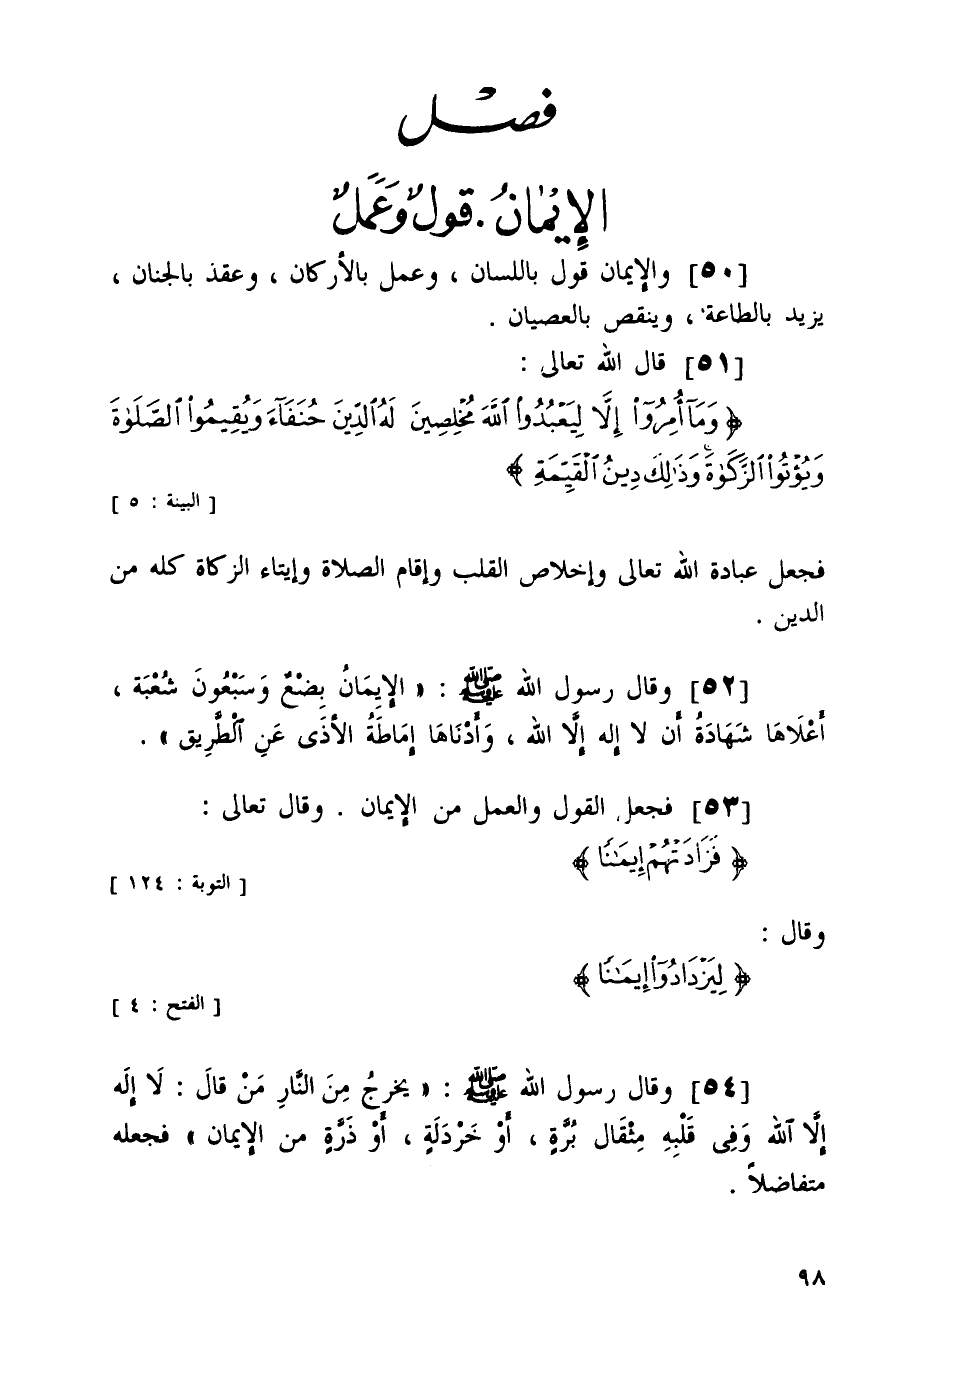 فصل
الإيمَانُ . قولٌ وعَمَلٌ
[٥٠] والإيمان قول باللسان ، وعمل بالأركان ، وعقذ بالجنان ،
يزيد بالطاعة ، وينقص بالعصيان .
[٥١] قال الله تعالى :
﴿ وَمَآ أُمِرُوٓا۟ إِلَّا لِيَعْبُدُوا۟ ٱللَّهَ مُخْلِصِينَ لَهُ ٱلدِّينَ حُنَفَآءَ وَيُقِيمُوا۟ ٱلصَّلَوٰةَ
وَيُؤْتُوا۟ ٱلزَّكَوٰةَ ۚ وَذَٰلِكَ دِينُ ٱلْقَيِّمَةِ ﴾
[ البينة : ٥ ]
فجعل عبادة الله تعالى وإخلاص القلب وإقام الصلاة وإيتاء الزكاة كله من
الدين .
[٥٢] وقال رسول الله ﷺ : « الإيمَانُ بِضْعٌ وَسَبْعُونَ شُعْبَة ،
أَعْلَاهَا شَهَادَةُ أَن لا إله إلَّا الله ، وَأَدْنَاهَا إمَاطَةُ الأذَى عَنِ ٱلْطَّرِيق » .
[٥٣] فجعل القول والعمل من الإيمان . وقال تعالى :
﴿ فَزَادَتْهُمْ إِيمَٰنًا ﴾
[ التوبة : ١٢٤ ]
وقال :
﴿ لِيَزْدَادُوٓا۟ إِيمَٰنًا ﴾
[ الفتح : ٤ ]
[٥٤] وقال رسول الله ﷺ : « يخرجُ مِنَ النَّارِ مَنْ قالَ : لَا إلَه
إلَّا ٱلله وَفِى قَلْبِهِ مِثْقَال بُرَّةٍ ، أَوْ خَرْدَلَةٍ ، أَوْ ذَرَّةٍ من الإيمان » فجعله
متفاضلاً .
٩٨